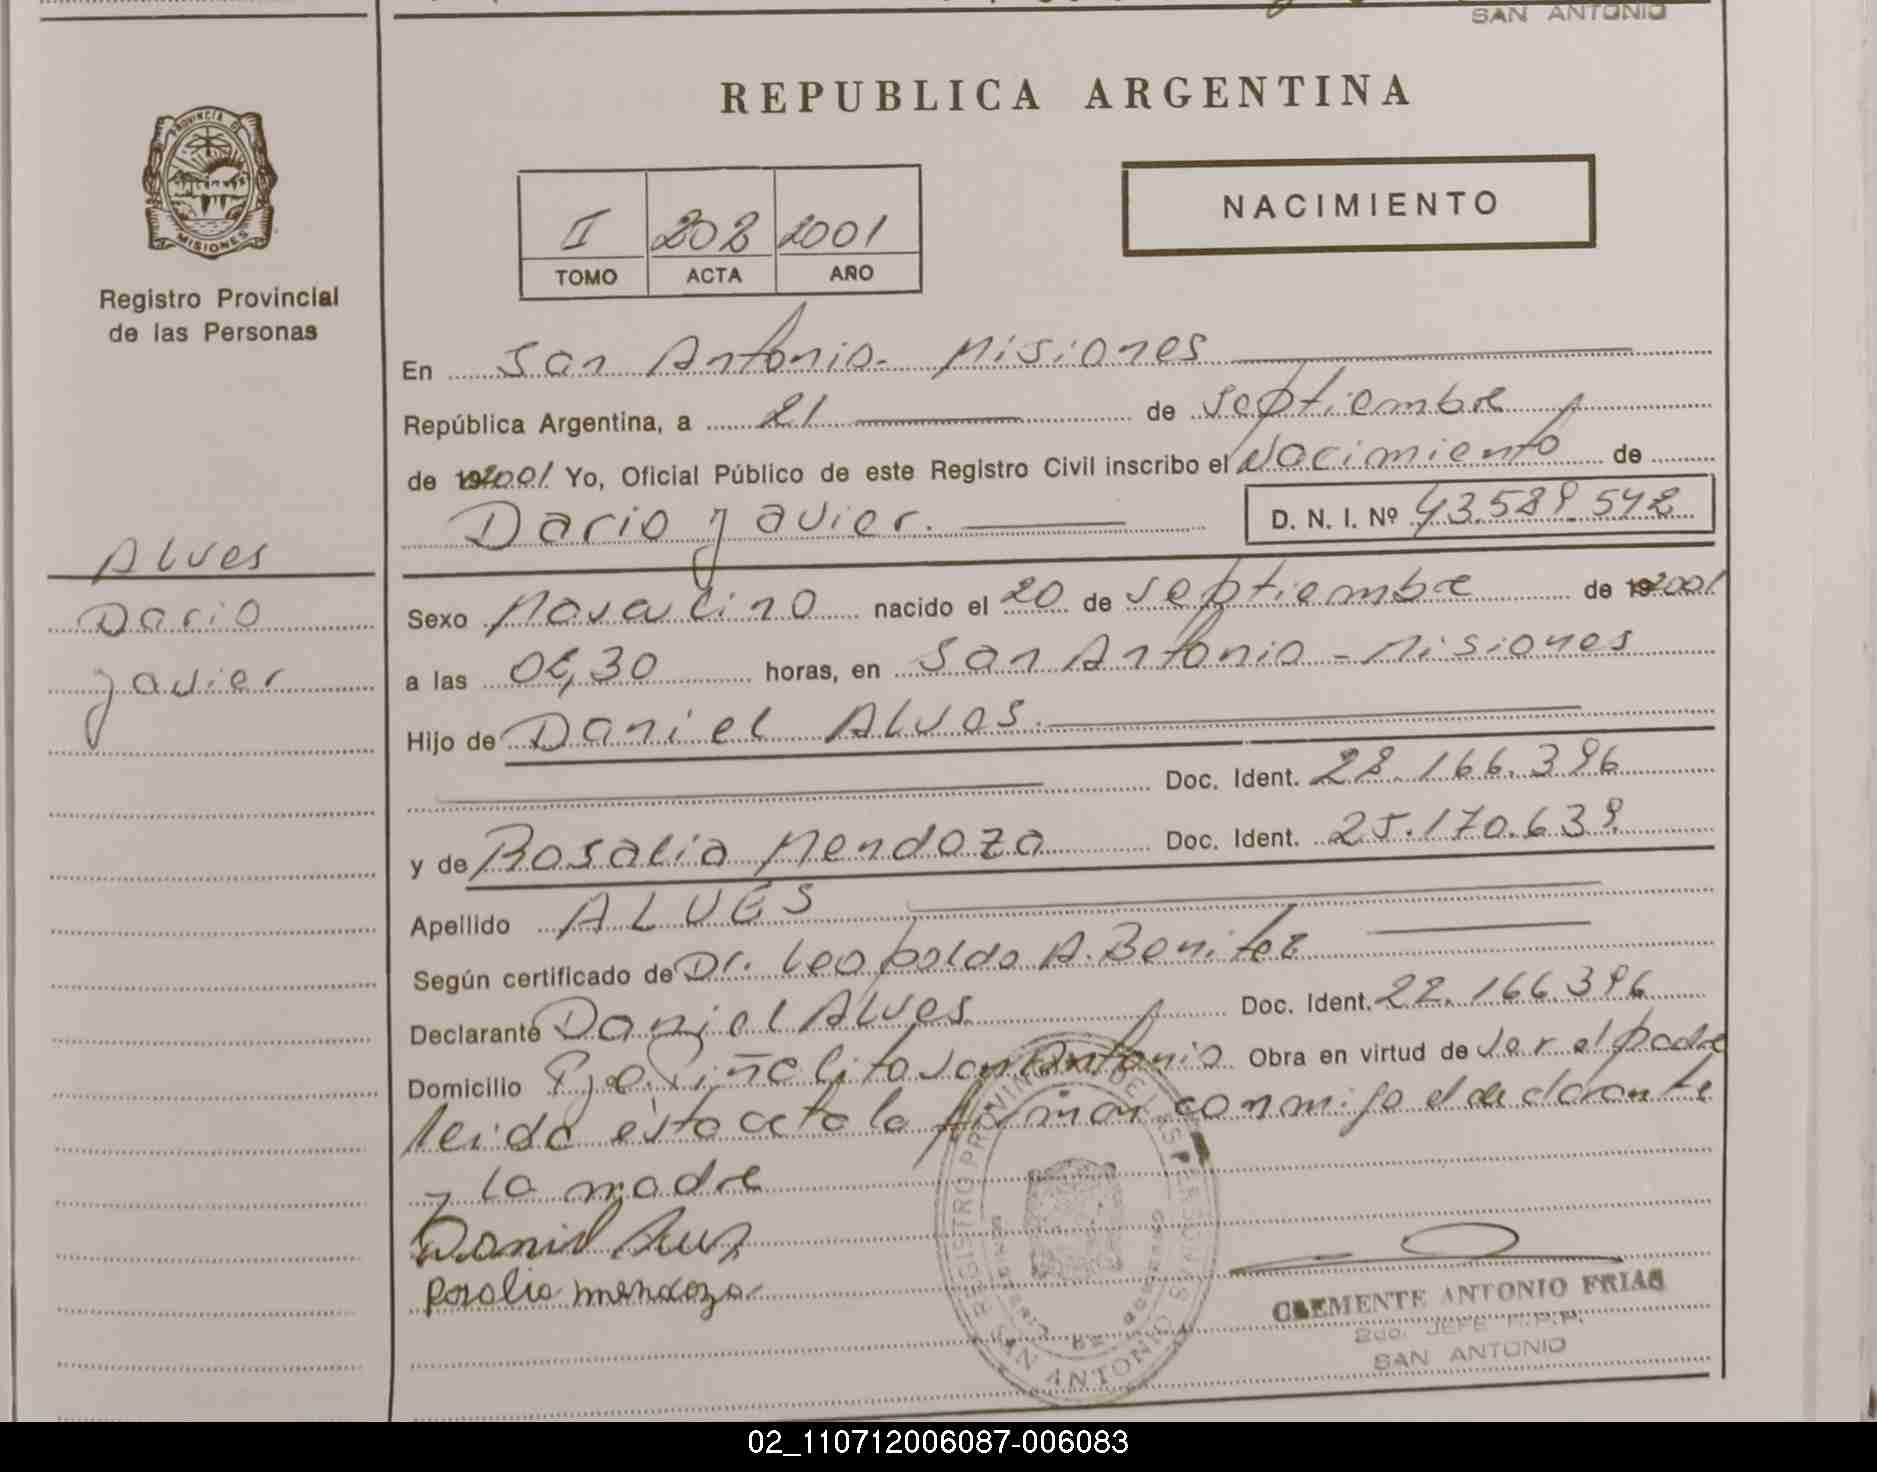 SAN ANTONIO
REPUBLICA ARGENTINA
PROVINCIA DE
MISIONES
Registro Provincial
de las Personas
II 202 2001
TOMO ACTA AÑO
NACIMIENTO
En San Antonio - Misiones
República Argentina, a 21 de septiembre
de 2001 Yo, Oficial Público de este Registro Civil inscribo el Nacimiento de
Dario Javier.
D. N. I. Nº 43.589.542
Alves
Dario
Javier
Sexo Masculino nacido el 20 de septiembre de 2001
a las 04,30 horas, en San Antonio - Misiones
Hijo de Daniel Alves.
Doc. Ident. 22.166.396
y de Rosalia Mendoza Doc. Ident. 25.170.639
Apellido ALVES
Según certificado de Dr. Leopoldo A. Benitez
Declarante Daniel Alves Doc. Ident. 22.166.396
Domicilio Piñalito San Antonio Obra en virtud de ser el padre
leida esta acta la firman conmigo el declarante
y la madre
Daniel Alves
Rosalia mendoza
REGISTRO PROVINCIAL DE LAS PERSONAS
SAN ANTONIO
CLEMENTE ANTONIO FRIAS
2do. JEFE R.P.P.
SAN ANTONIO
02_110712006087-006083